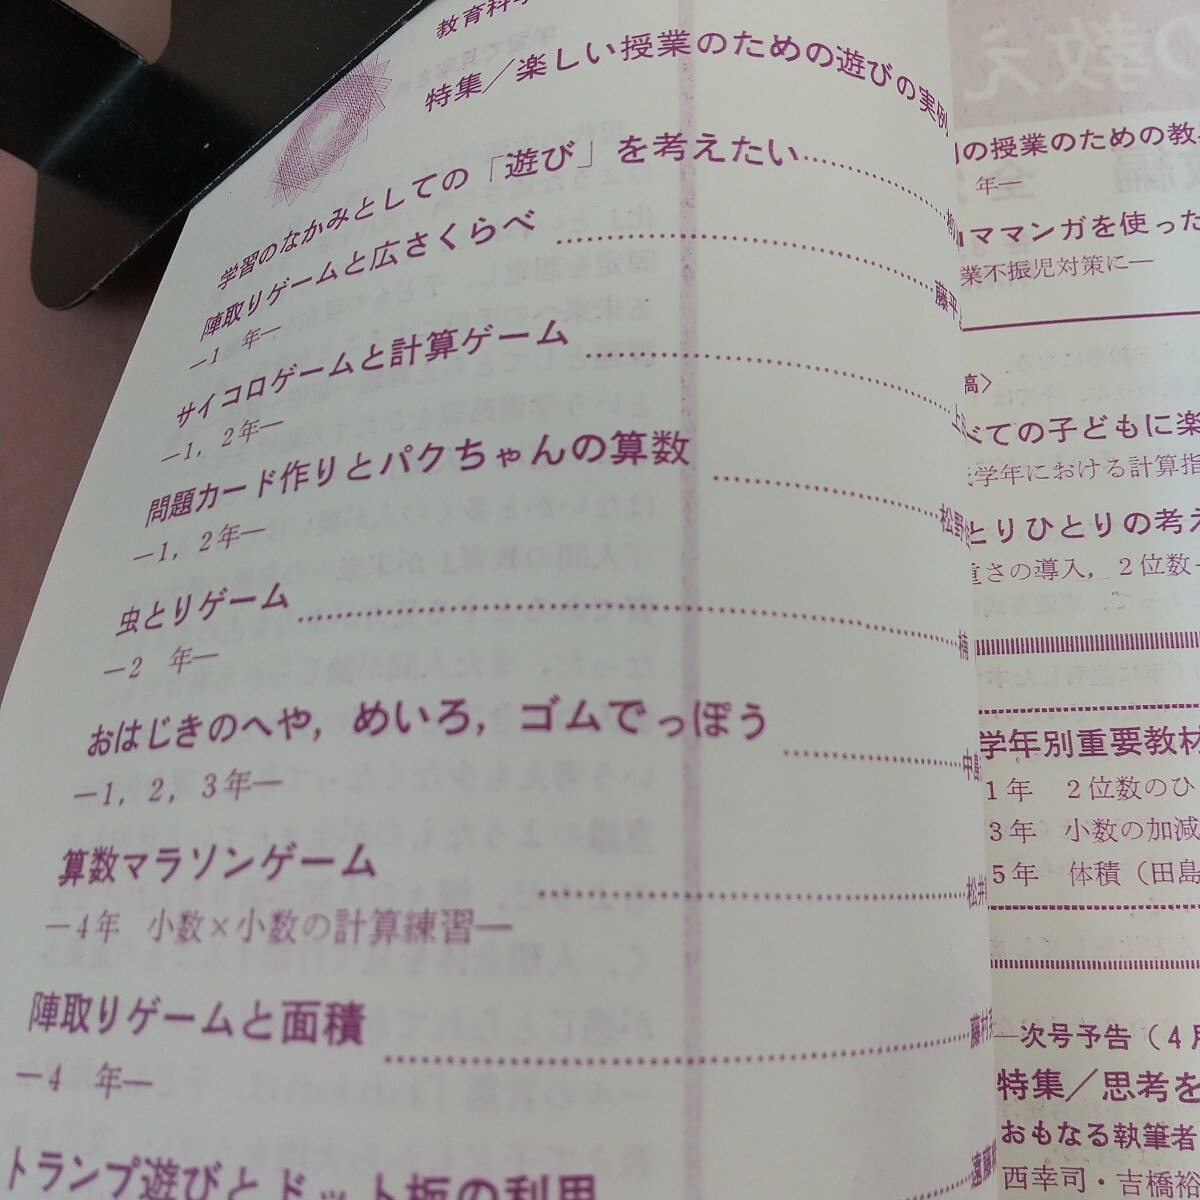 教育科学
特集／楽しい授業のための遊びの実例
学習のなかみとしての「遊び」を考えたい
陣取りゲームと広さくらべ
—1 年—
藤平
サイコロゲームと計算ゲーム
—1，2年—
問題カード作りとパクちゃんの算数
—1，2年—
松野
虫とりゲーム
—2 年—
おはじきのへや，めいろ，ゴムでっぽう
—1，2，3年—
中島
算数マラソンゲーム
—4年 小数×小数の計算練習—
松井
陣取りゲームと面積
—4 年—
藤村
トランプ遊びとドット板の利用
遠藤
の教え
の授業のための教
年—
ママンガを使った
業不振児対策に—
高〉
べての子どもに楽
学年における計算指
とりひとりの考え
重さの導入，2位数
学年別重要教材
1年 2位数のひ
3年 小数の加減
5年 体積（田島
—次号予告（4月
特集／思考を
おもなる執筆者
西幸司・吉橋裕